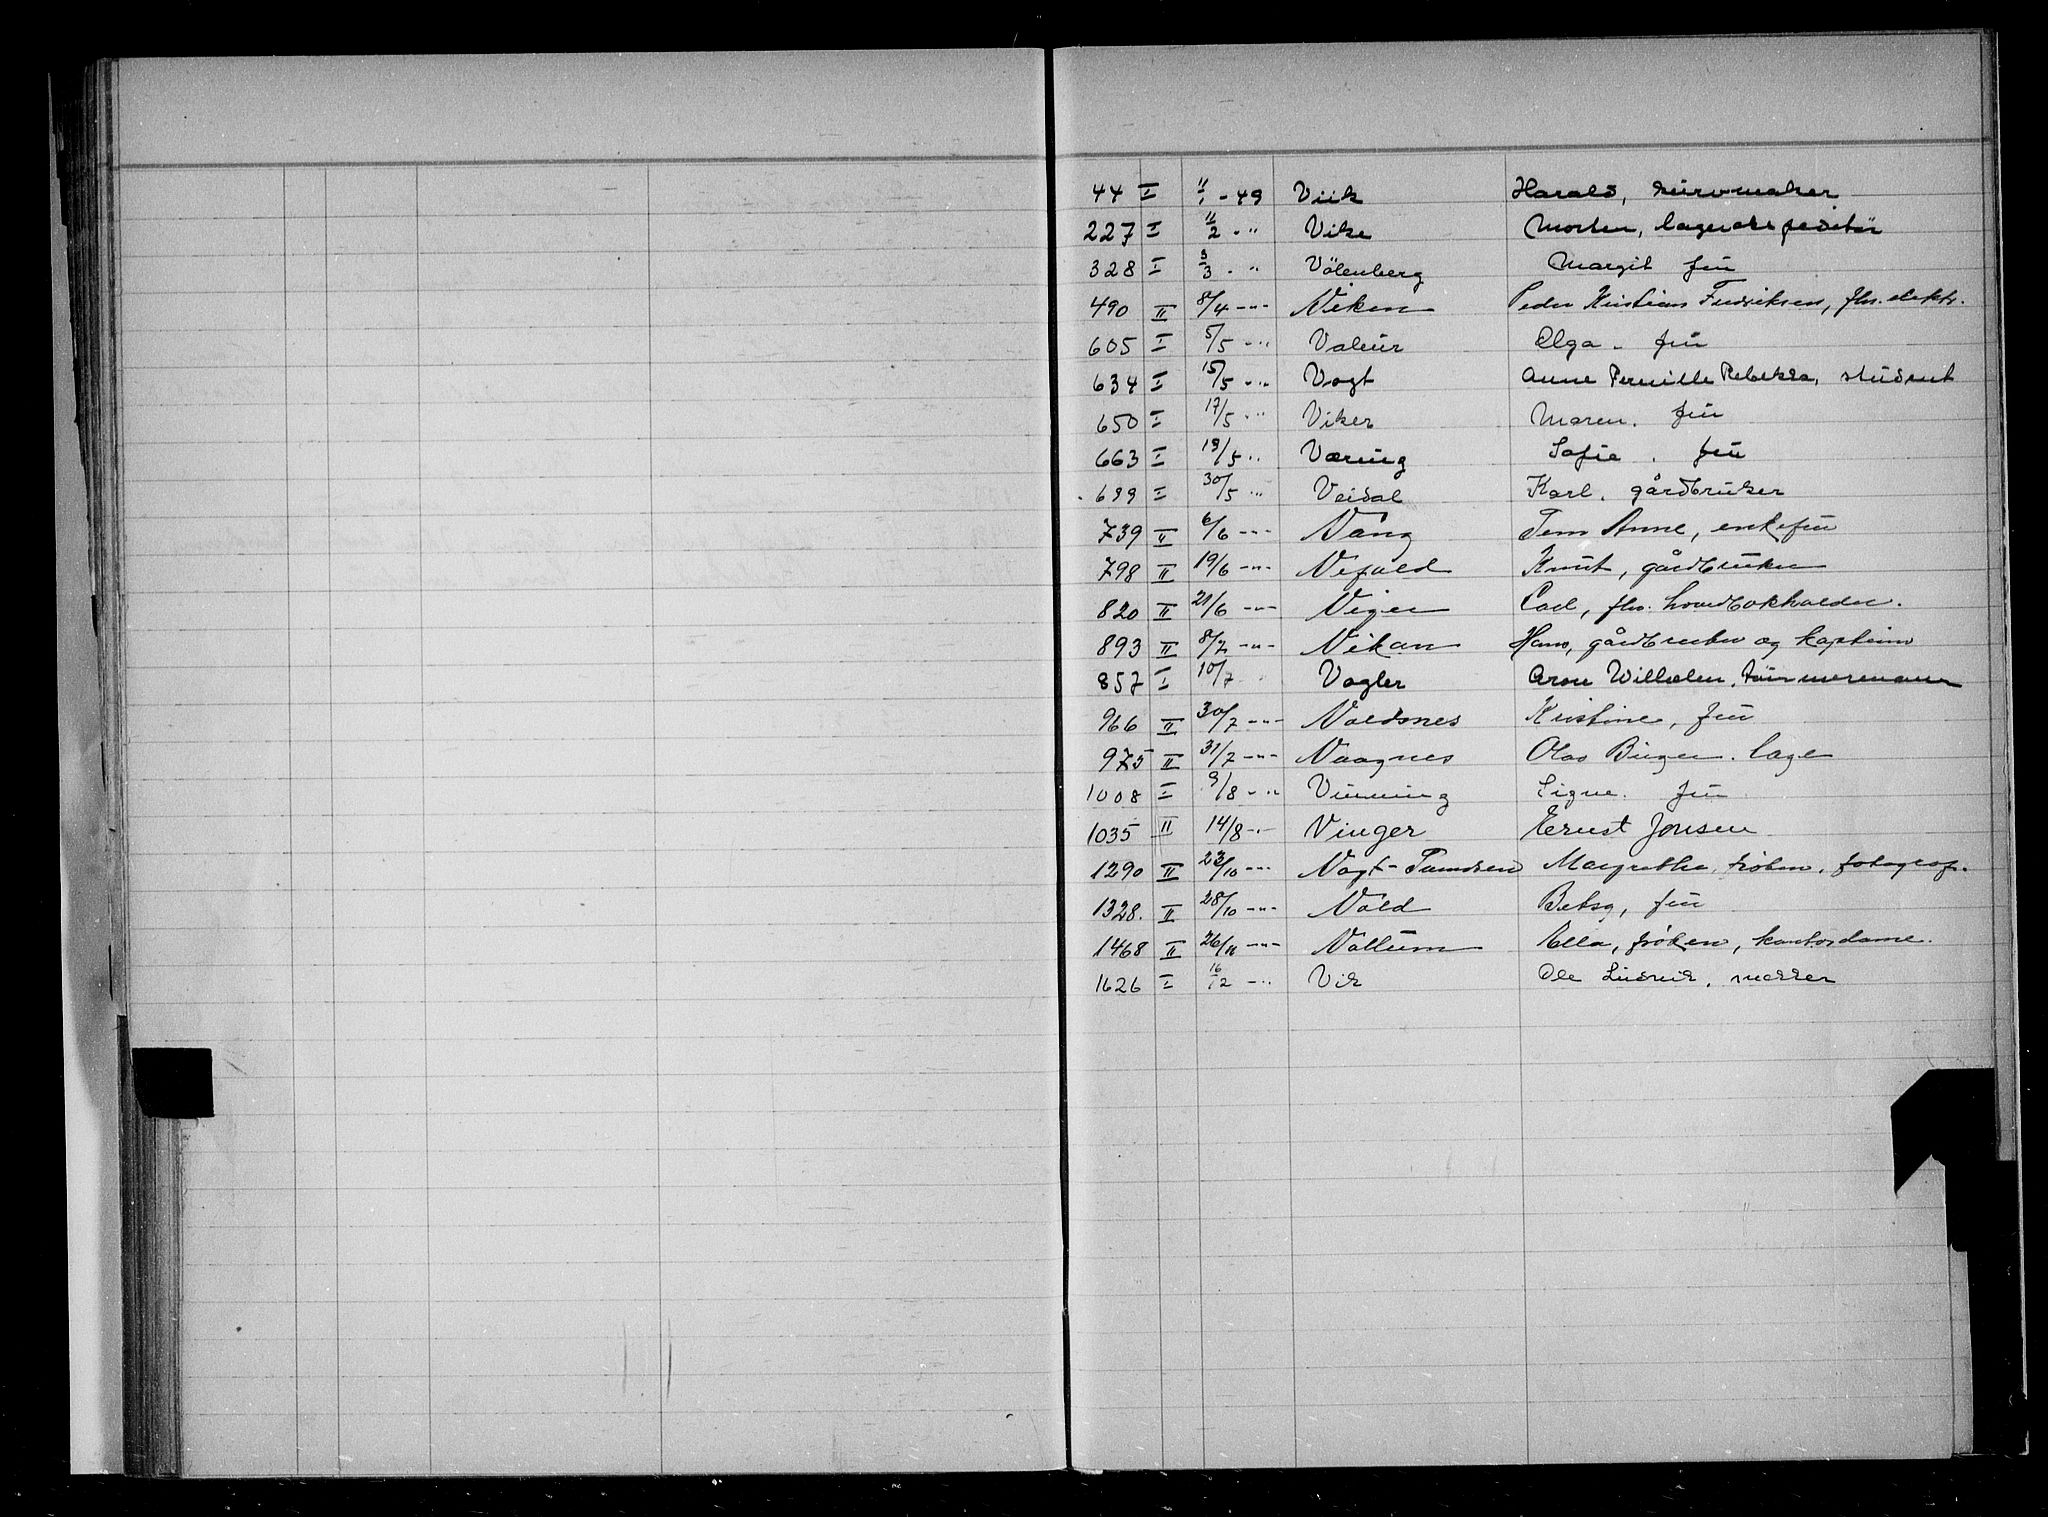 44 I 11/1 - 49 Viik Harald, kurvmaker
227 I 11/2 - " Vike Morten, lagerekspeditör
328 I 3/3 - " Völenberg Margit fru
490 II 8/4 -"- Viken Peder Kristian Fredriksen, fhv. elektr.
605 I 5/5 -"- Valeur Olga - fru
634 I 15/5 -"- Vogt Anne Pernille Rebekka, student
650 I 17/5 -"- Viker Maren. fru
663 I 19/5 " Væring Sofie. fru
699 I 30/5 -"- Veidal Karl. gårdbruker
739 II 6/6 -"- Vang Anne, enkefru
798 II 19/6 -"- Vefald Knut, gårdbruker
820 II 21/6 -"- Viger Carl, fhv. hovedbokholder.
893 II 8/7 -"- Vikan Hans, gårdbruker og kaptein
857 I 10/7 Vogler Aron Wilhelm, tömmermann
966 II 30/7 -"- Valdsnes Kristine, fru
975 II 31/7 -"- Vaagnes Olav Birger. lage
1008 I 9/8 -"- Vinning Signe. fru
1035 II 14/8 -"- Vinger Ernst Jonsen
1290 II 23/10 -"- Vogt-Svendsen Margrethe, fröken, fotograf.
1328. II 28/10 -"- Vold Betsy, fru
1468 II 26/11 -"- Vollum Ella, fröken, kontordame.
1626 I 16/12 -"- Vik Ole Ludvik. snekker